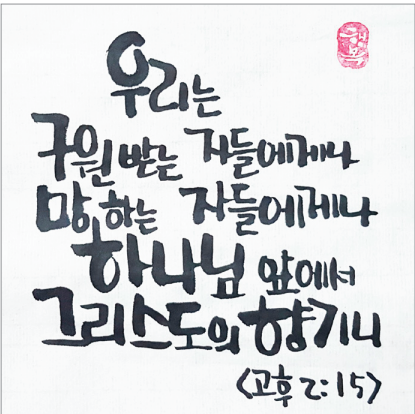 우리는
구원 받는 자들에게나
망하는 자들에게나
하나님 앞에서
그리스도의 향기니
<고후 2:15>